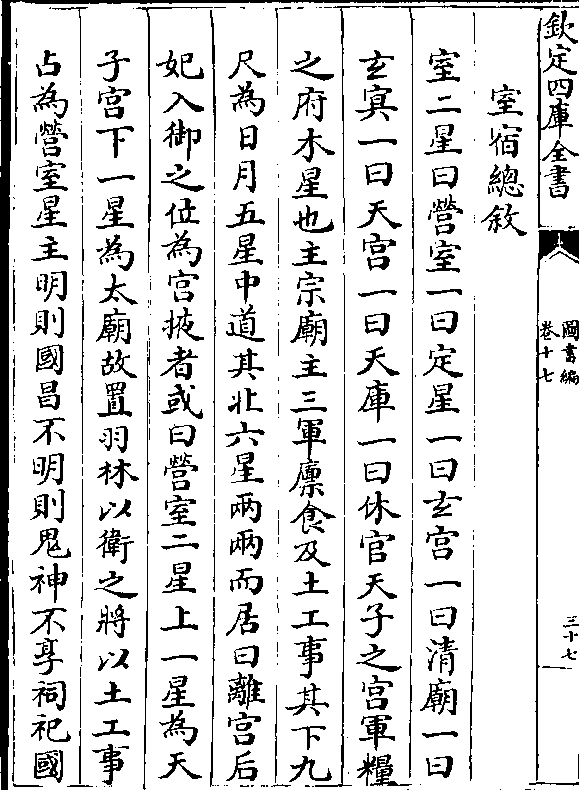 欽定四庫全書
圖書編
卷十七
三十七
室宿總敘
室二星曰營室一曰定星一曰玄宫一曰清廟一曰
玄冥一曰天宫一曰天庫一曰休官天子之宫軍糧
之府木星也主宗廟主三軍廪食及土工事其下九
尺為日月五星中道其北六星兩兩而居曰離宫后
妃入御之位為宫掖者或曰營室二星上一星為天
子宫下一星為太廟故置羽林以衛之將以土工事
占為營室星主明則國昌不明則鬼神不享祠祀國